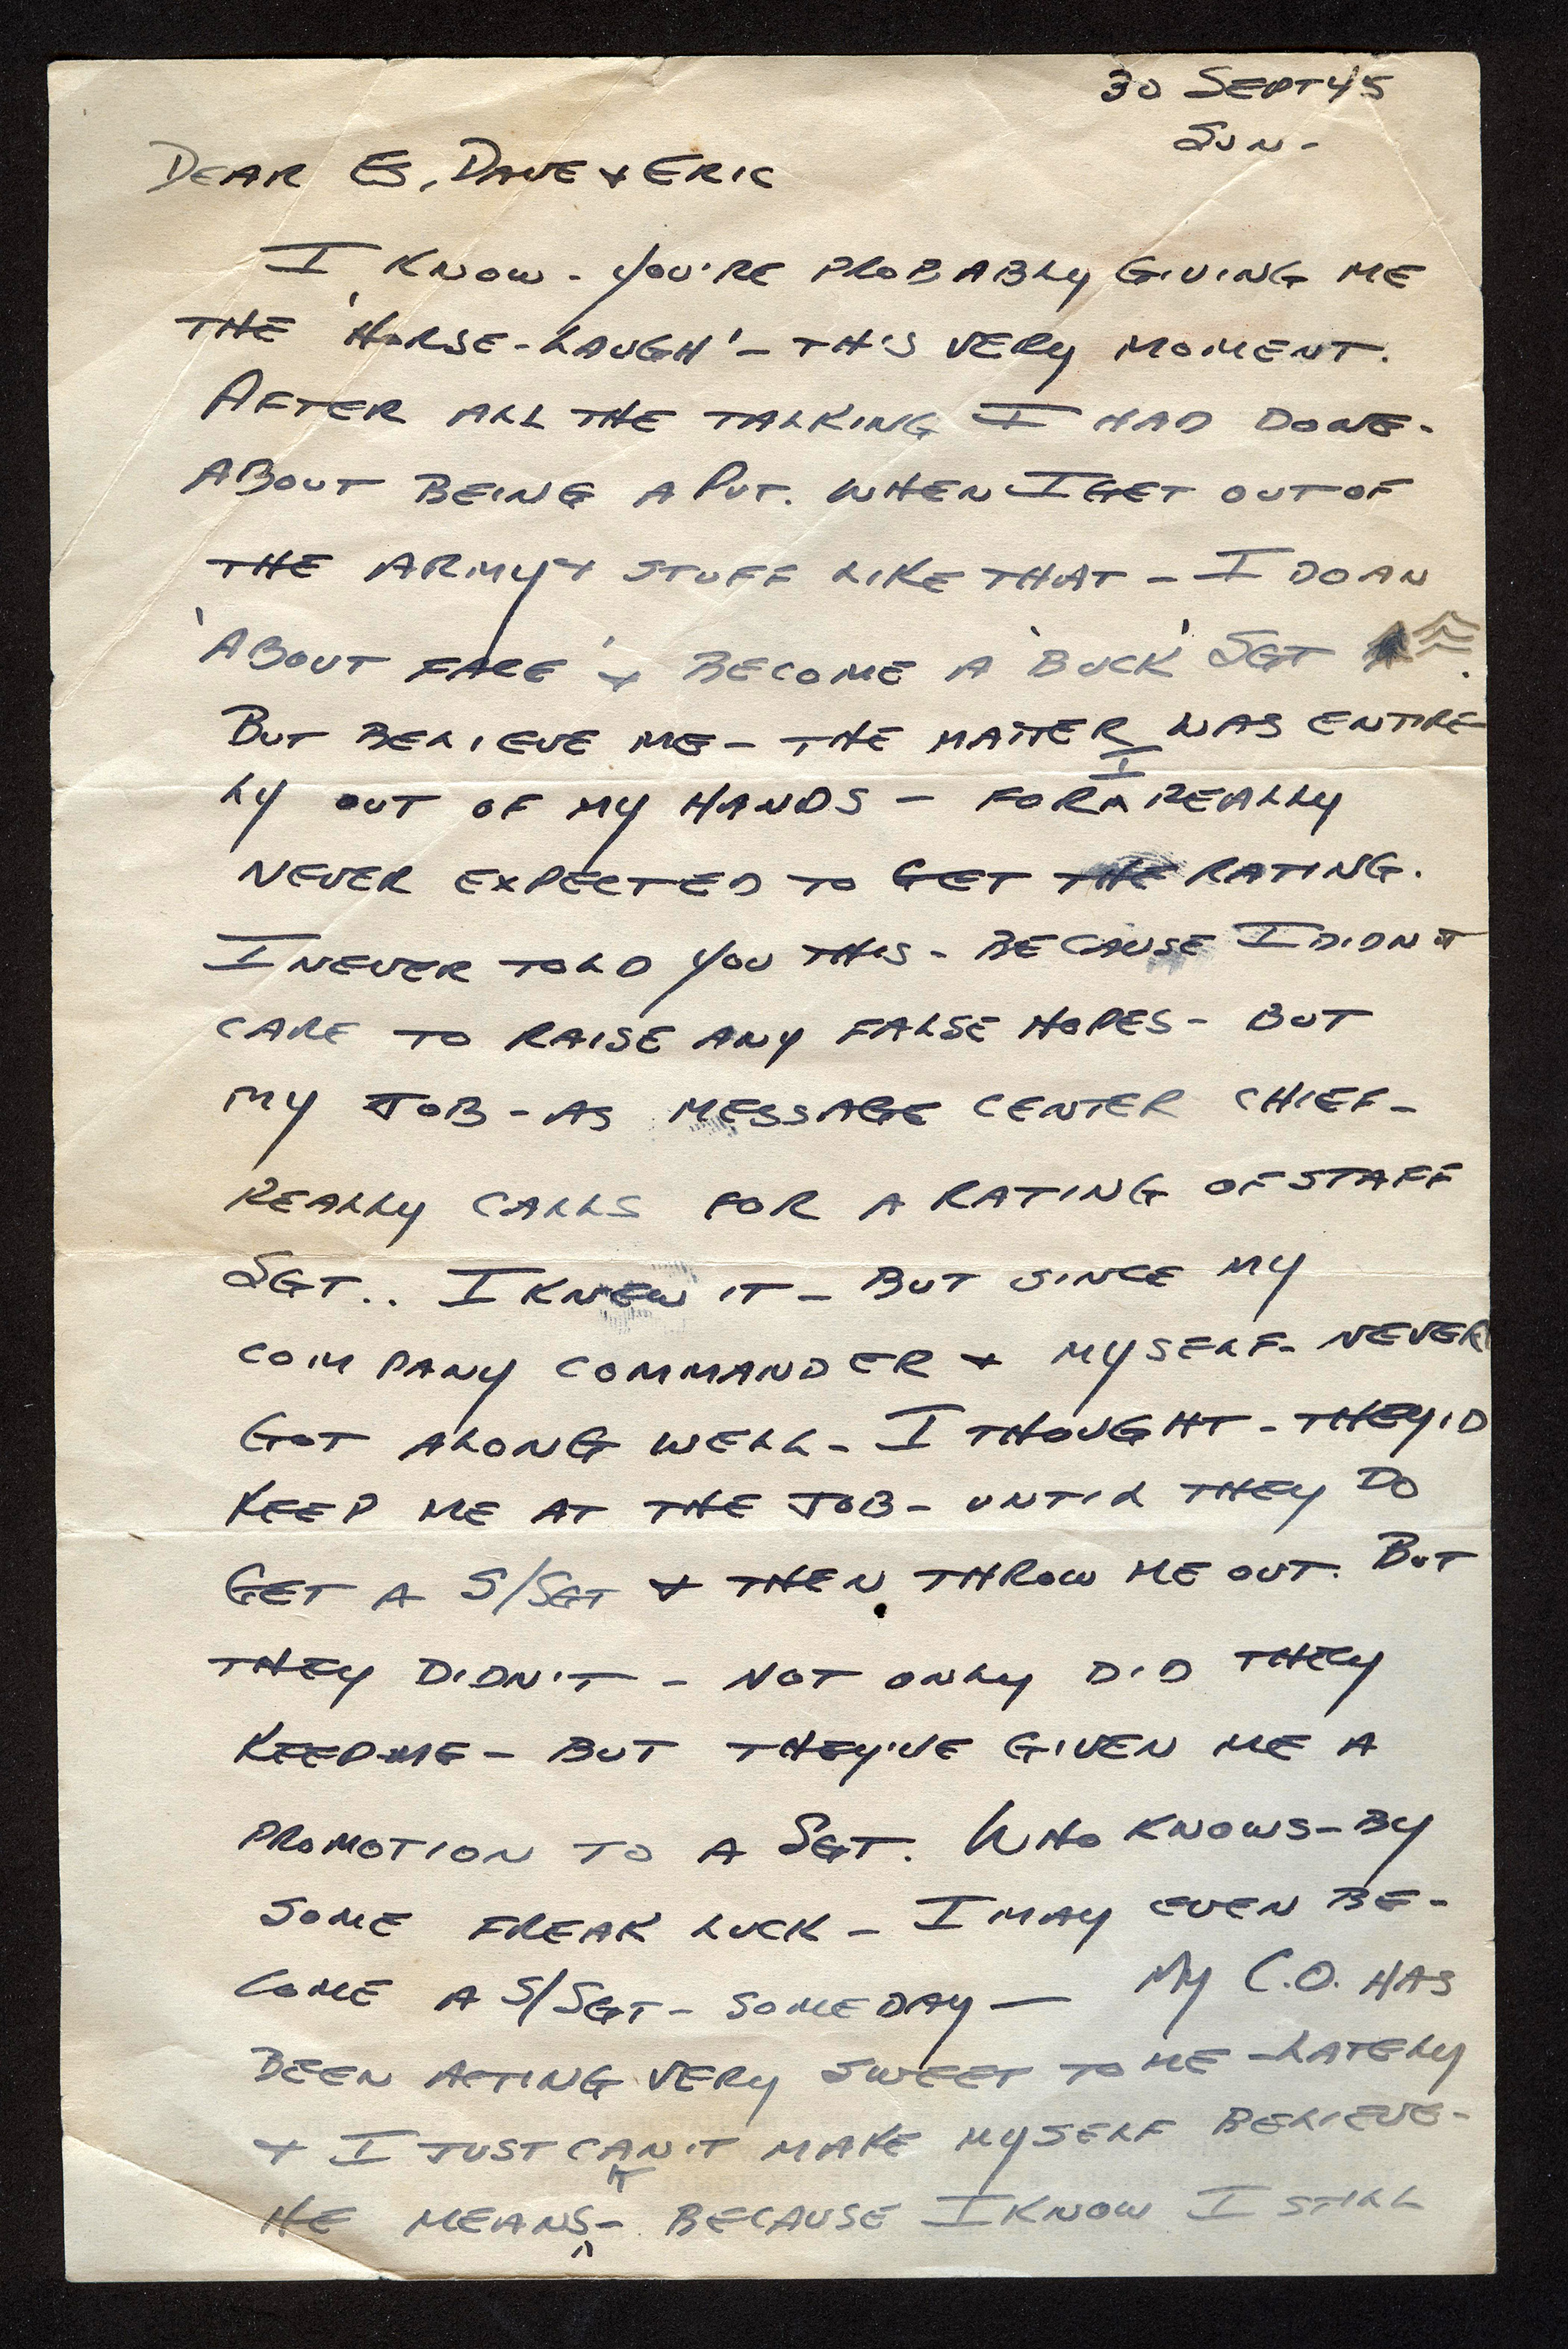 30 SEPT 45
SUN-
DEAR ES, DAVE & ERIC
I KNOW - YOU'RE PROBABLY GIVING ME
THE 'HORSE-LAUGH' - THIS VERY MOMENT.
AFTER ALL THE TALKING I HAD DONE -
ABOUT BEING A PVT. WHEN I GET OUT OF
THE ARMY & STUFF LIKE THAT - I DO AN
'ABOUT FACE' & BECOME A 'BUCK' SGT .
BUT BELIEVE ME - THE MATTER WAS ENTIRE-
LY OUT OF MY HANDS - FOR I REALLY
NEVER EXPECTED TO GET THE RATING.
I NEVER TOLD YOU THIS - BECAUSE I DIDN'T
CARE TO RAISE ANY FALSE HOPES - BUT
MY JOB - AS MESSAGE CENTER CHIEF -
REALLY CALLS FOR A RATING OF STAFF
SGT.. I KNEW IT - BUT SINCE MY
COMPANY COMMANDER & MYSELF - NEVER
GOT ALONG WELL - I THOUGHT - THEY'D
KEEP ME AT THE JOB - UNTIL THEY DO
GET A S/SGT & THEN THROW ME OUT. BUT
THEY DIDN'T - NOT ONLY DID THEY
KEEP ME - BUT THEY'VE GIVEN ME A
PROMOTION TO A SGT. WHO KNOWS - BY
SOME FREAK LUCK - I MAY EVEN BE-
COME A S/SGT - SOMEDAY — MY C.O. HAS
BEEN ACTING VERY SWEET TO ME - LATELY
& I JUST CAN'T MAKE MYSELF BELIEVE -
HE MEANS IT - BECAUSE I KNOW I STILL